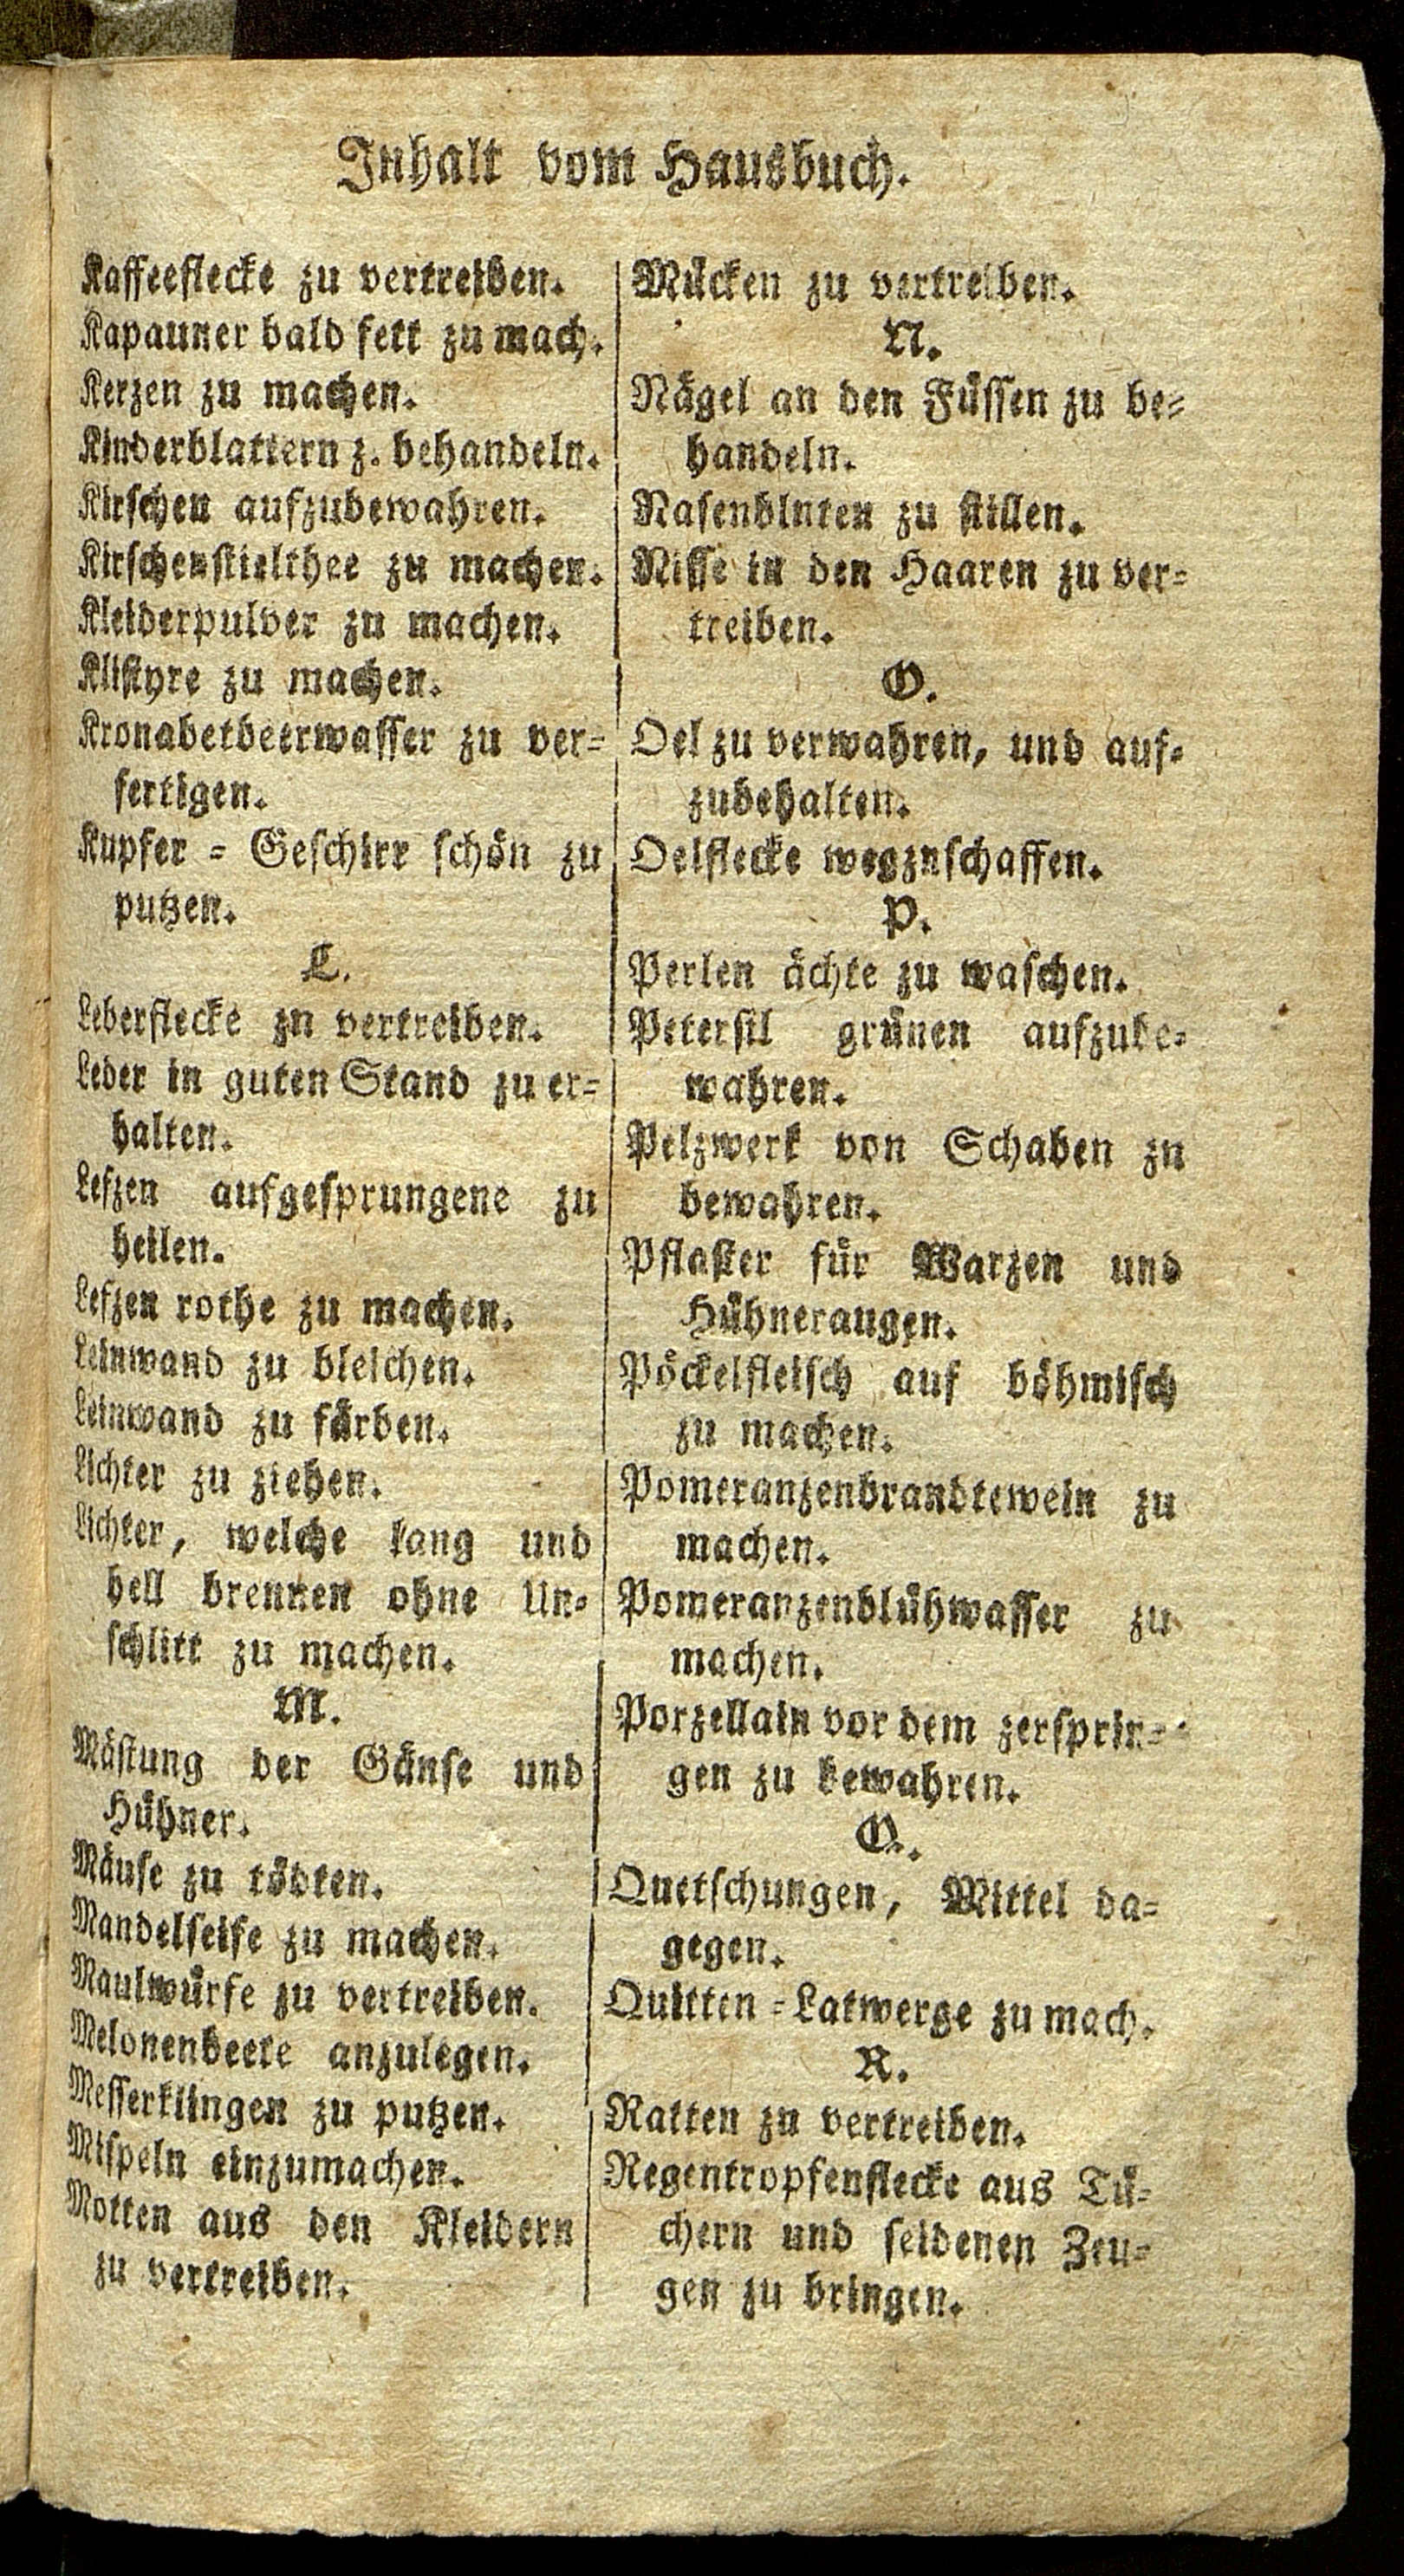 Inhalt vom Hausbuch.
Kaffeeflecke zu vertreiben.
Kapauner bald fett zu mach.
Kerzen zu machen.
Kinderblattern z. behandeln.
Kirschen aufzubewahren.
Kirschenstielthee zu machen.
Kleiderpulver zu machen.
Klistyre zu machen.
Kronabetbeerwasser zu ver=
fertigen.
Kupfer = Geschirr schön zu
putzen.
L.
Leberflecke zn vertreiben.
Leder in guten Stand zu er=
halten.
Lefzen aufgesprungene zu
heilen.
Lefzen rothe zu machen.
Leinwand zu bleichen.
Leinwand zu färben.
Lichter zu ziehen.
Lichter, welche lang und
hell brennen ohne Un=
schlitt zu machen.
M.
Mästung der Gänse und
Hühner.
Mäuse zu tödten.
Mandelseife zu machen.
Maulwürfe zu vertreiben.
Melonenbeete anzulegen.
Messerklingen zu putzen.
Mispeln einzumachen.
Motten aus den Kleidern
zu vertreiben.
Mücken zu vertreiben.
N.
Nägel an den Füssen zu be=
handeln.
Nasenblnten zu stillen.
Nisse in den Haaren zu ver=
treiben.
O.
Oel zu verwahren, und auf=
zubehalten.
Oelflecke wegznschaffen.
P.
Perlen ächte zu waschen.
Petersil grünen aufzube=
wahren.
Pelzwerk von Schaben zn
bewahren.
Pflaster für Warzen und
Hühneraugen.
Pöckelfleisch auf böhmisch
zu machen.
Pomeranzenbrandtewein zu
machen.
Pomeranzenblühwasser zu
machen.
Porzellain vor dem zersprin=
gen zu bewahren.
Q.
Quetschungen, Mittel da=
gegen.
Quitten = Latwerge zu mach.
R.
Ratten zu vertreiben.
Regentropfenflecke aus Tü=
chern und seidenen Zeu=
gen zu bringen.